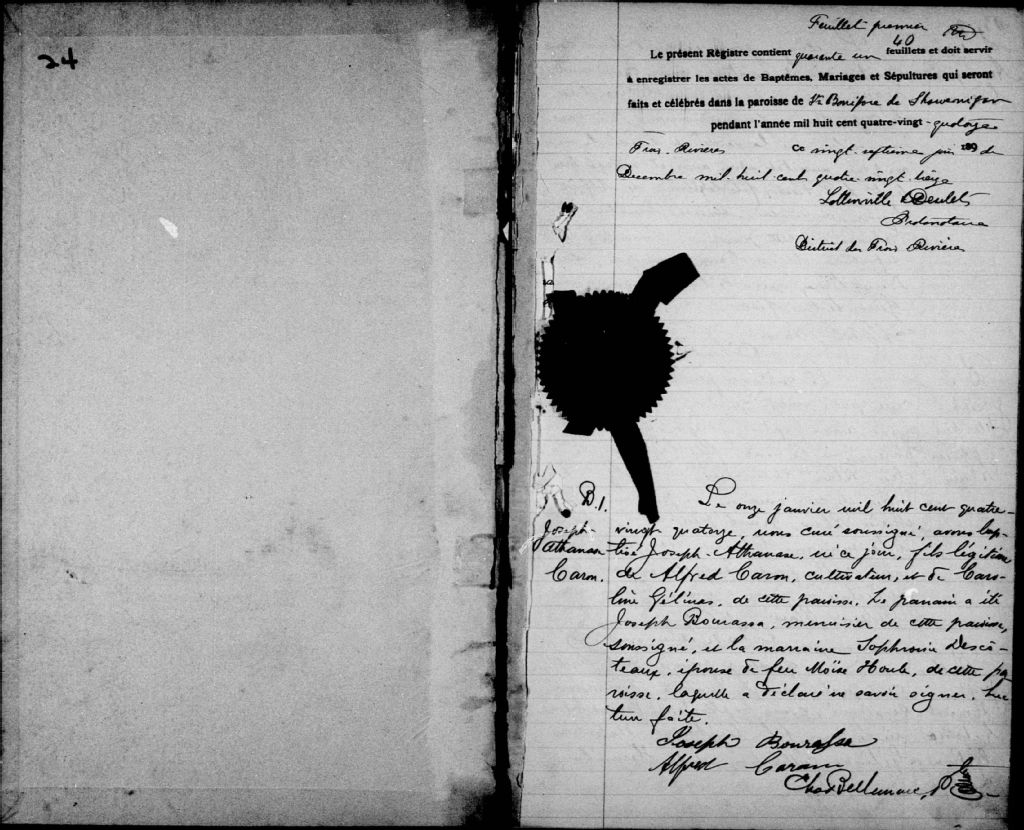 24
Feuillet premier
Le présent Régistre contient quarante un 40 feuillets et doit servir
à enregistrer les actes de Baptêmes, Mariages et Sépultures qui seront
faits et célébrés dans la paroisse de St Boniface de Shawenigan
pendant l'année mil huit cent quatre-vingt-quatorze
Trois-Rivières Ce vingt-septième jour 189 de
Décembre mil-huit-cent quatre-vingt treize
Lottinville &
Protonotaire
District des Trois Rivières
B. 1.
Joseph-
Athanase
Caron.
Le onze janvier mil huit cent quatre-
vingt quatorze, nous curé soussigné, avons bap-
tisé Joseph-Athanase, né ce jour, fils légitime
de Alfred Caron, cultivateur, et de Caro-
line Gélinas, de cette paroisse. Le parrain a été
Joseph Bourassa, menuisier de cette paroisse,
soussigné, et la marraine Sophronie Descô-
teaux, épouse de feu Moïse Houle, de cette pa
roisse, laquelle a déclaré ne savoir signer. Lec
ture faite.
Joseph Bourassa
Alfred Caron
Chs Bellemare, Ptre